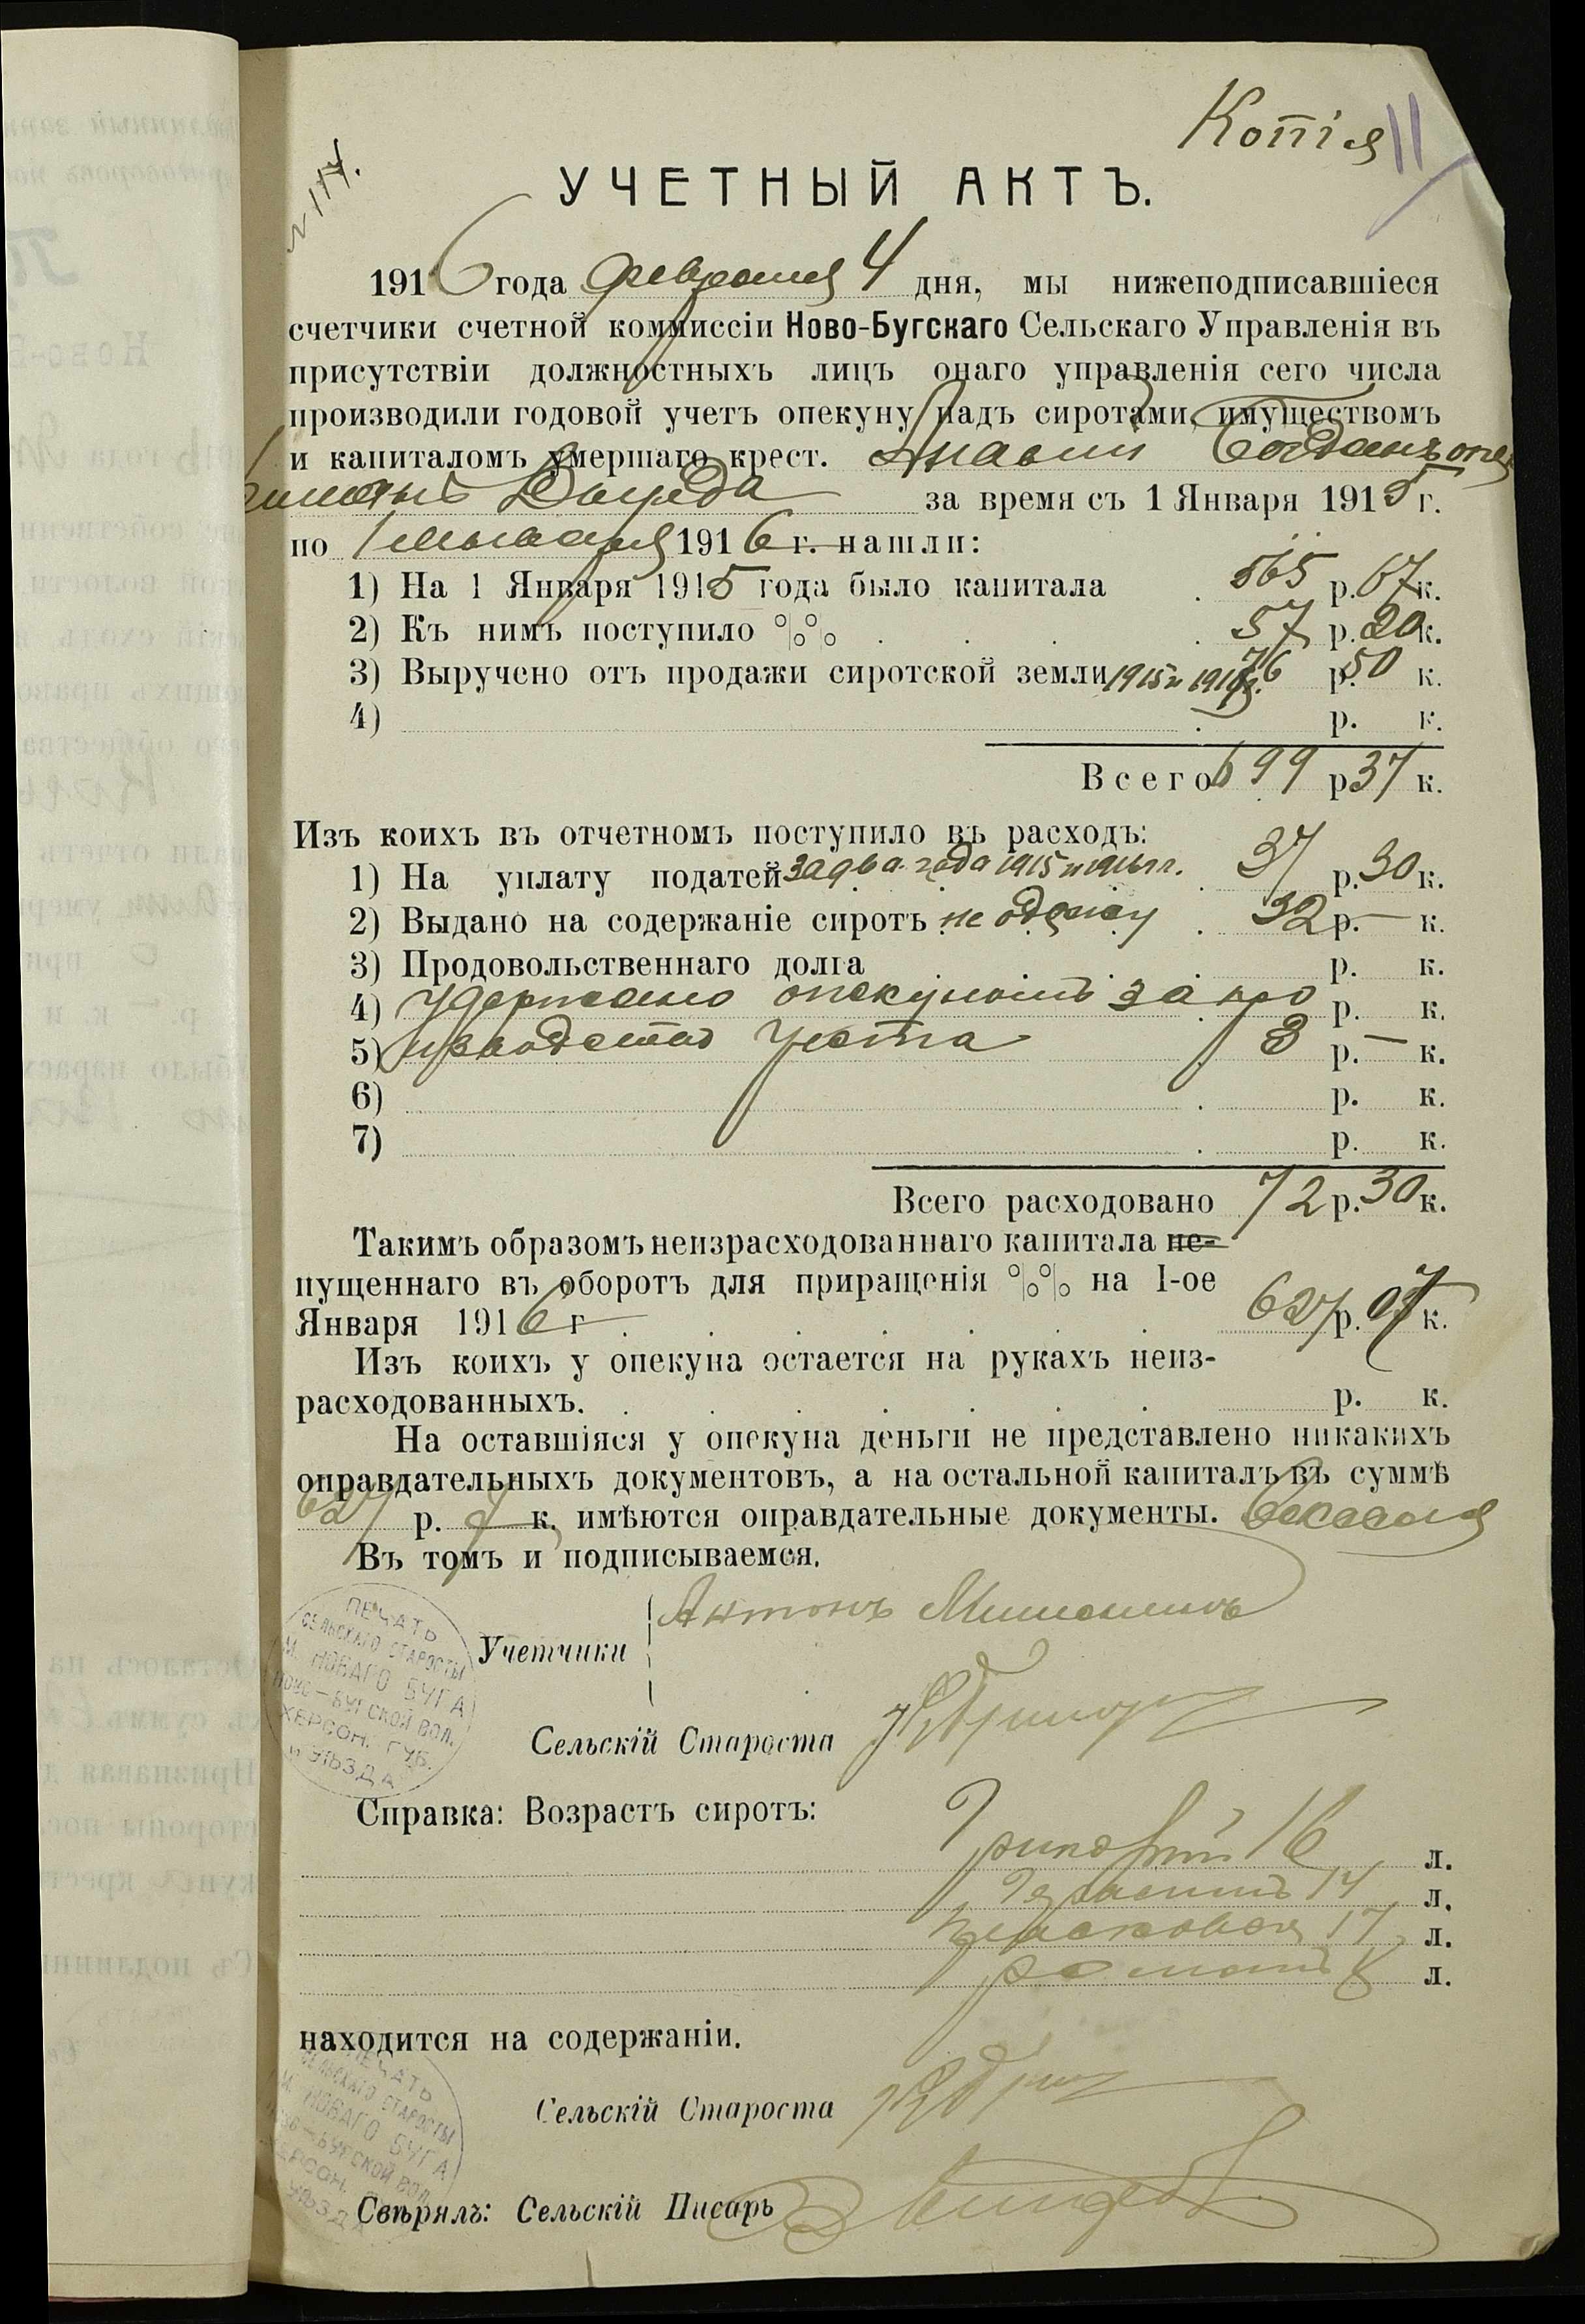 Копія 11
№ 117.
УЧЕТНЫЙ АКТЪ.
1916 года февраля 4 дня, мы нижеподписавшіеся
счетчики счетной коммиссіи Ново-Бугскаго Сельскаго Управленія въ
присутствіи должностныхъ лицъ онаго управленія сего числа
производили годовой учетъ опекуну надъ сиротами, имуществомъ
и капиталомъ умершаго крест.
за время съ 1 Января 1915 г.
по 1 января 1916 г. нашли:
1) На 1 Января 1915 года было капитала 565 р. 67 к.
2) Къ нимъ поступило %% 57 р. 20 к.
3) Выручено отъ продажи сиротской земли 1915 и 1916 г. 76 р. 50 к.
4) р. к.
Всего 699 р 37 к.
Изъ коихъ въ отчетномъ поступило въ расходъ:
1) На уплату податей за два года 1915 и 1916 гг. 37 р. 30 к.
2) Выдано на содержаніе сиротъ 32 р. — к.
3) Продовольственнаго долга р. к.
4) Удержано опекуномъ за про р. к.
5) изводство учета 3 р. — к.
6) р. к.
7) р. к.
Всего расходовано 72 р. 30 к.
Такимъ образомъ неизрасходованнаго капитала не-
пущеннаго въ оборотъ для приращенія %% на 1-ое
Января 1916 г 627 р. 07 к.
Изъ коихъ у опекуна остается на рукахъ неиз-
расходованныхъ. р. к.
На оставшіяся у опекуна деньги не представлено никакихъ
оправдательныхъ документовъ, а на остальной капиталъ въ суммѣ
627 р. 7 к. имѣются оправдательные документы. Векселя
Въ томъ и подписываемся.
Учетчики Антонъ
Сельскій Староста
ПЕЧАТЬ
СЕЛЬСКАГО СТАРОСТЫ
М. НОВАГО БУГА
НОВО-БУГСКОЙ ВОЛ.
ХЕРСОН. ГУБ.
И УѢЗДА
Справка: Возрастъ сиротъ:
Григорій 16 л.
Герасимъ 14 л.
17 л.
Романъ 8 л.
находится на содержаніи.
Сельскій Староста
ПЕЧАТЬ
СЕЛЬСКАГО СТАРОСТЫ
М. НОВАГО БУГА
НОВО-БУГСКОЙ ВОЛ.
ХЕРСОН.
УѢЗДА
Свѣрялъ: Сельскій Писарь